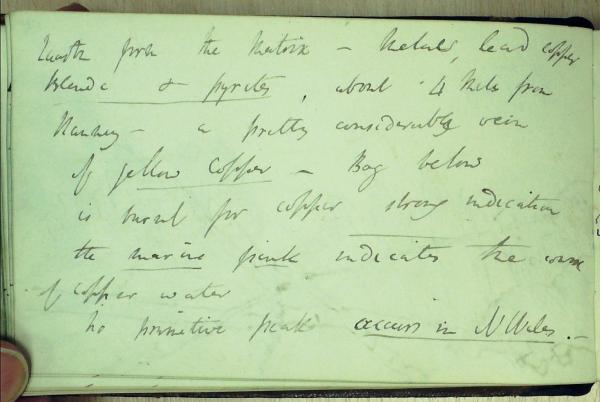 from the Matrix – Metals, lead copper
Blende & pyrites, about 4 Miles from
Nanney – a pretty considerable vein
of yellow copper – Bog below
is burnt for copper strong indication
the marine pink indicates the course
of copper water
No primitive peak occurs in N Wales. –